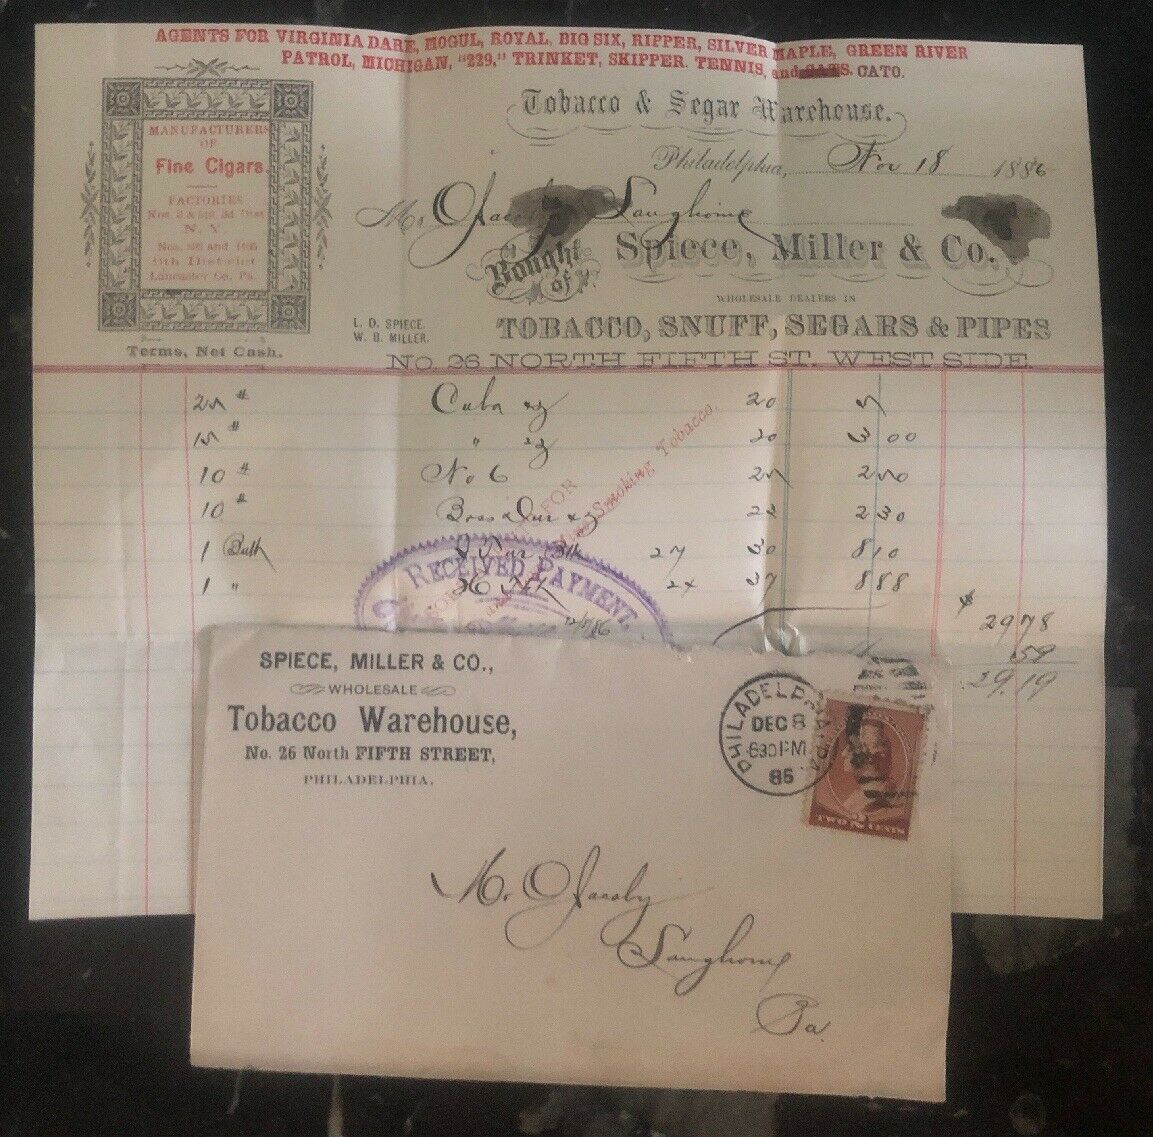 AGENTS FOR VIRGINIA DARE, MOGUL, ROYAL, BIG SIX, RIPPER, SILVER MAPLE, GREEN RIVER
PATROL, MICHIGAN, "229," TRINKET, SKIPPER. TENNIS, and CATO.
MANUFACTURERS
OF
Fine Cigars.
FACTORIES
N. Y.
9th District
Lancaster Co. Pa.
Terms, Net Cash.
Tobacco & Segar Warehouse.
Philadelphia, Nov 18 1886
Mr O Jacoby Langhorne
Bought of
Spiece, Miller & Co.
WHOLESALE DEALERS IN
L. D. SPIECE.
W. B. MILLER.
TOBACCO, SNUFF, SEGARS & PIPES
No. 26 NORTH FIFTH ST. WEST SIDE.
25 # Cuba 20 5
15 # " 20 3 00
10 # No 6 25 2 50
10 # Boss 23 2 30
1 Butt 27 30 8 10
1 " 24 37 8 88
$ 29 78
59
29.19
FOR
Smoking Tobacco.
RECEIVED PAYMENT,
SPIECE, MILLER & CO.,
WHOLESALE
Tobacco Warehouse,
No. 26 North FIFTH STREET,
PHILADELPHIA.
PHILADELPHIA, PA.
DEC 8
630 PM
86
2
TWO CENTS
Mr O Jacoby
Langhorne
Pa